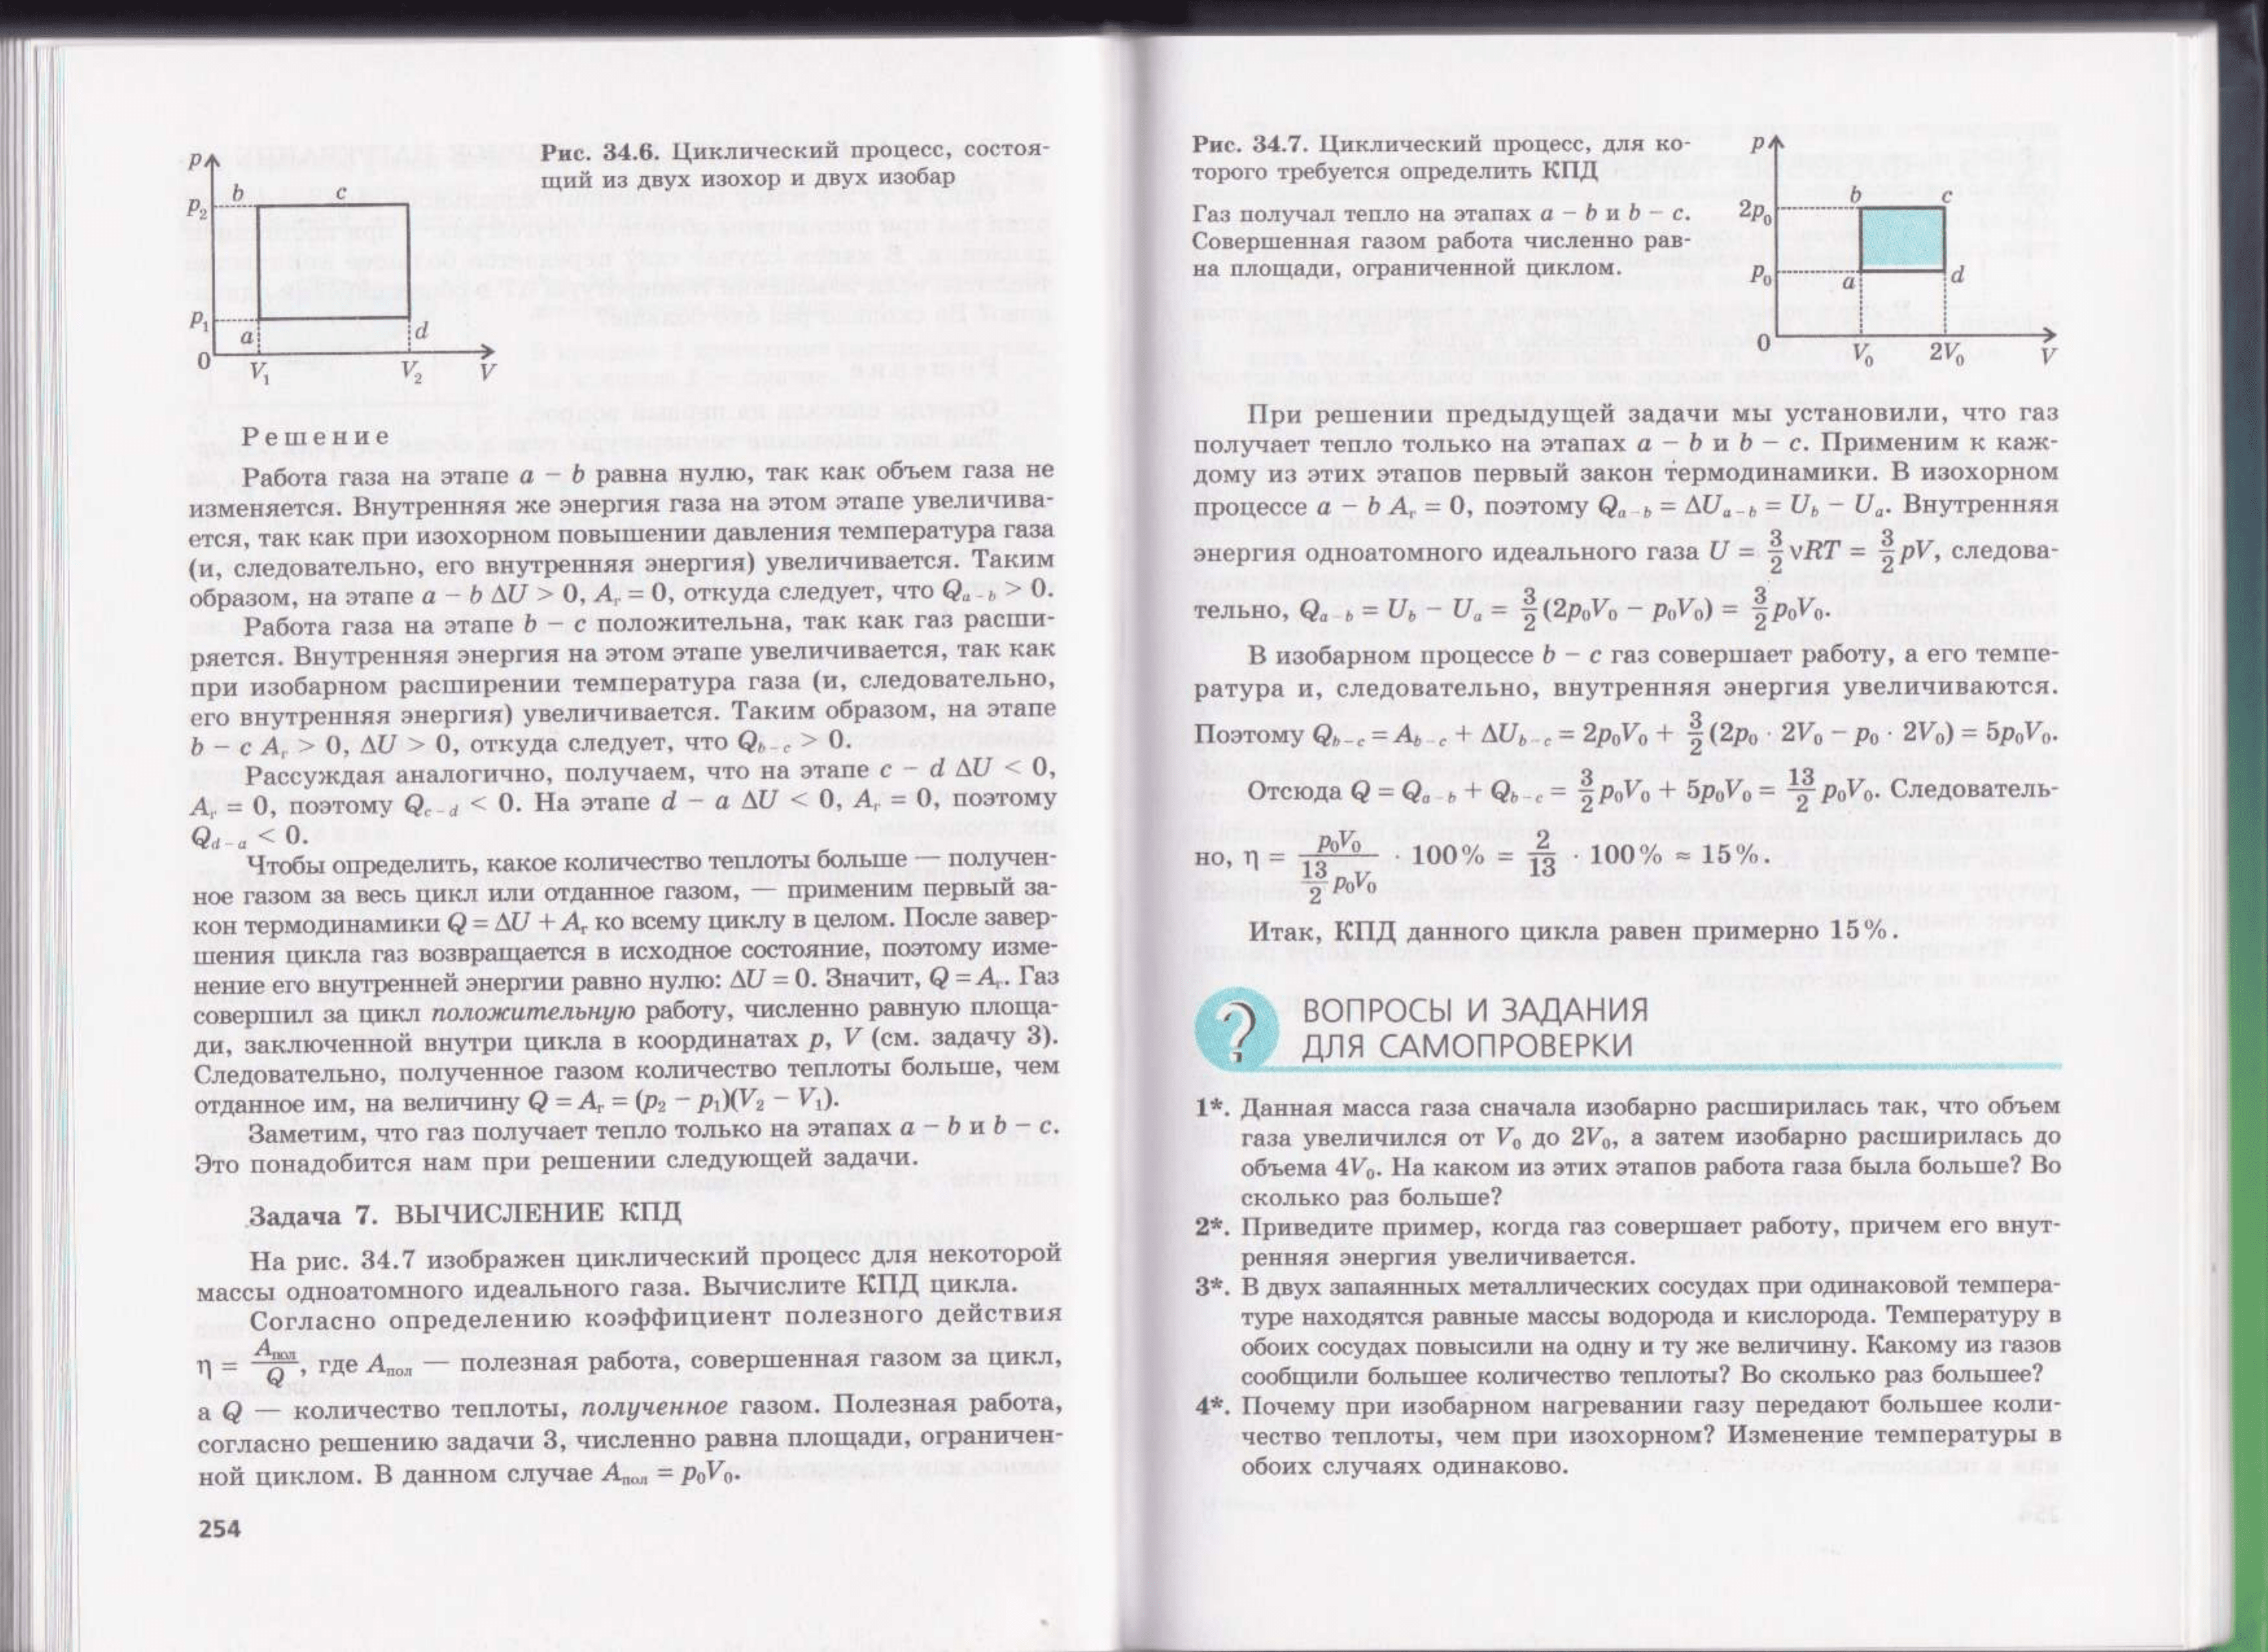 Рис. 34.6. Циклический процесс, состоя-
щий из двух изохор и двух изобар
p
b
c
p₂
p₁
a
d
0
V₁
V₂
V
Решение
Работа газа на этапе a – b равна нулю, так как объем газа не
изменяется. Внутренняя же энергия газа на этом этапе увеличива-
ется, так как при изохорном повышении давления температура газа
(и, следовательно, его внутренняя энергия) увеличивается. Таким
образом, на этапе a – b ΔU > 0, Aᵣ = 0, откуда следует, что Qₐ₋b > 0.
Работа газа на этапе b – c положительна, так как газ расши-
ряется. Внутренняя энергия на этом этапе увеличивается, так как
при изобарном расширении температура газа (и, следовательно,
его внутренняя энергия) увеличивается. Таким образом, на этапе
b – c Aг > 0, ΔU > 0, откуда следует, что Qb–c > 0.
Рассуждая аналогично, получаем, что на этапе c – d ΔU < 0,
Aг = 0, поэтому Qc–d < 0. На этапе d – a ΔU < 0, Aг = 0, поэтому
Qd–a < 0.
Чтобы определить, какое количество теплоты больше — получен-
ное газом за весь цикл или отданное газом, — применим первый за-
кон термодинамики Q = ΔU + Aг ко всему циклу в целом. После завер-
шения цикла газ возвращается в исходное состояние, поэтому изме-
нение его внутренней энергии равно нулю: ΔU = 0. Значит, Q = Aг. Газ
совершил за цикл положительную работу, численно равную площа-
ди, заключенной внутри цикла в координатах p, V (см. задачу 3).
Следовательно, полученное газом количество теплоты больше, чем
отданное им, на величину Q = Aг = (p₂ – p₁)(V₂ – V₁).
Заметим, что газ получает тепло только на этапах a – b и b – c.
Это понадобится нам при решении следующей задачи.
Задача 7. ВЫЧИСЛЕНИЕ КПД
На рис. 34.7 изображен циклический процесс для некоторой
массы одноатомного идеального газа. Вычислите КПД цикла.
Согласно определению коэффициент полезного действия
η = Aпол/Q, где Aпол — полезная работа, совершенная газом за цикл,
а Q — количество теплоты, полученное газом. Полезная работа,
согласно решению задачи 3, численно равна площади, ограничен-
ной циклом. В данном случае Aпол = p₀V₀.
254
Рис. 34.7. Циклический процесс, для ко-
торого требуется определить КПД
Газ получал тепло на этапах a – b и b – c.
Совершенная газом работа численно рав-
на площади, ограниченной циклом.
p
b
c
2p₀
p₀
a
d
0
V₀
2V₀
V
При решении предыдущей задачи мы установили, что газ
получает тепло только на этапах a – b и b – c. Применим к каж-
дому из этих этапов первый закон термодинамики. В изохорном
процессе a – b Aг = 0, поэтому Qa–b = ΔUa–b = Ub – Ua. Внутренняя
энергия одноатомного идеального газа U = 3/2 νRT = 3/2 pV, следова-
тельно, Qa–b = Ub – Ua = 3/2 (2p₀V₀ – p₀V₀) = 3/2 p₀V₀.
В изобарном процессе b – c газ совершает работу, а его темпе-
ратура и, следовательно, внутренняя энергия увеличиваются.
Поэтому Qb–c = Ab–c + ΔUb–c = 2p₀V₀ + 3/2 (2p₀ · 2V₀ – p₀ · 2V₀) = 5p₀V₀.
Отсюда Q = Qa–b + Qb–c = 3/2 p₀V₀ + 5p₀V₀ = 13/2 p₀V₀. Следователь-
но, η = p₀V₀ / (13/2 p₀V₀) · 100% = 2/13 · 100% ≈ 15%.
Итак, КПД данного цикла равен примерно 15%.
?
ВОПРОСЫ И ЗАДАНИЯ
ДЛЯ САМОПРОВЕРКИ
1*. Данная масса газа сначала изобарно расширилась так, что объем
газа увеличился от V₀ до 2V₀, а затем изобарно расширилась до
объема 4V₀. На каком из этих этапов работа газа была больше? Во
сколько раз больше?
2*. Приведите пример, когда газ совершает работу, причем его внут-
ренняя энергия увеличивается.
3*. В двух запаянных металлических сосудах при одинаковой темпера-
туре находятся равные массы водорода и кислорода. Температуру в
обоих сосудах повысили на одну и ту же величину. Какому из газов
сообщили большее количество теплоты? Во сколько раз большее?
4*. Почему при изобарном нагревании газу передают большее коли-
чество теплоты, чем при изохорном? Изменение температуры в
обоих случаях одинаково.